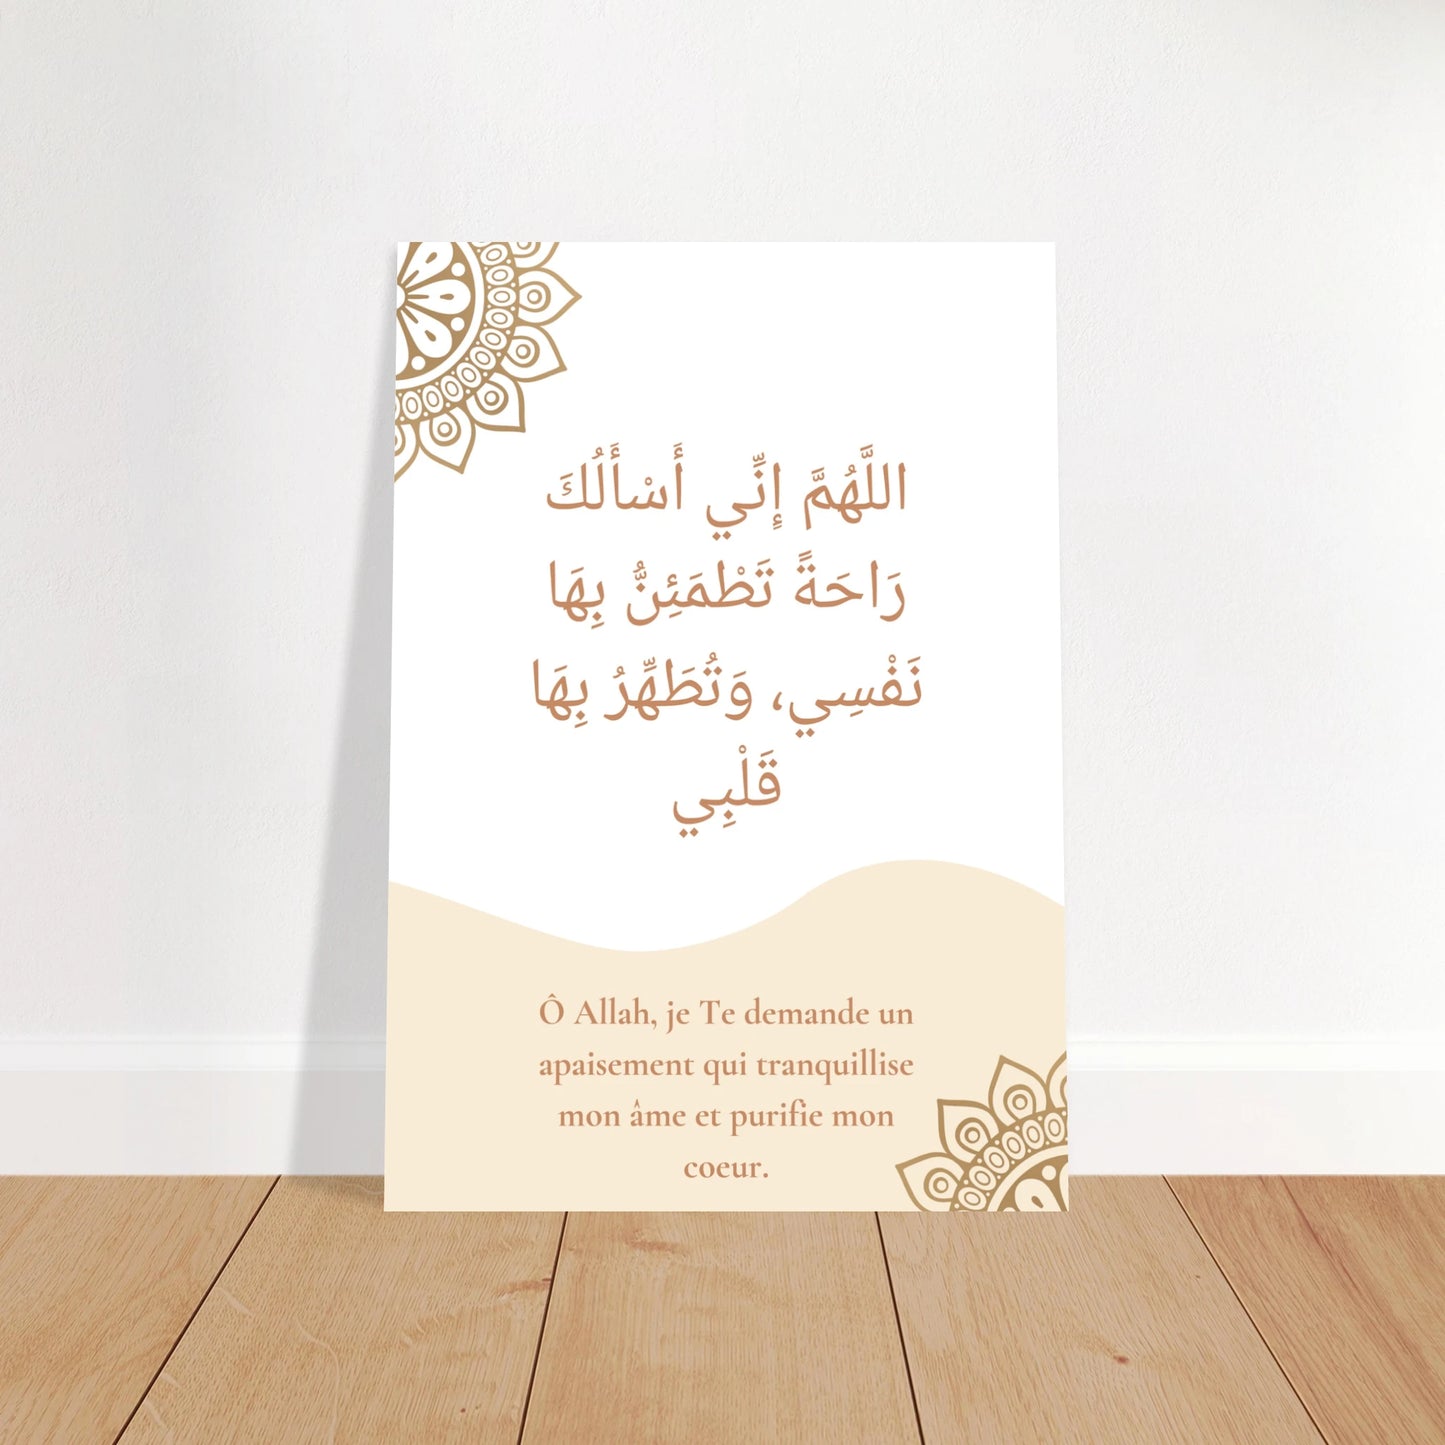 اللَّهُمَّ إِنِّي أَسْأَلُكَ
رَاحَةً تَطْمَئِنُّ بِهَا
نَفْسِي، وَتُطَهِّرُ بِهَا
قَلْبِي
Ô Allah, je Te demande un
apaisement qui tranquillise
mon âme et purifie mon
coeur.